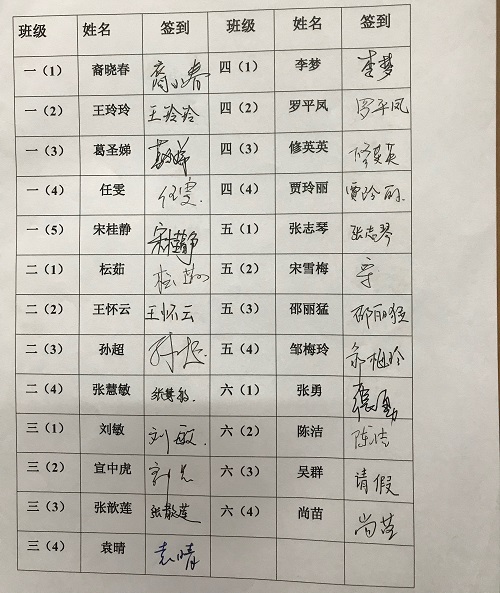 班级 姓名 签到 班级 姓名 签到
一（1） 裔晓春 裔小春 四（1） 李梦 李梦
一（2） 王玲玲 王玲玲 四（2） 罗平凤 罗平凤
一（3） 葛圣娣 四（3） 修英英 修英英
一（4） 任雯 任雯. 四（4） 贾玲丽 贾玲丽.
一（5） 宋桂静 宋桂静 五（1） 张志琴 张志琴
二（1） 枟茹 五（2） 宋雪梅
二（2） 王怀云 王怀云 五（3） 邵丽猛 邵丽猛
二（3） 孙超 孙超. 五（4） 邹梅玲 邹梅玲
二（4） 张慧敏 张慧敏. 六（1） 张勇
三（1） 刘敏 刘敏. 六（2） 陈洁 陈洁
三（2） 宣中虎 六（3） 吴群 请假
三（3） 张歆莲 张歆莲 六（4） 尚苗 尚苗
三（4） 袁晴 袁晴